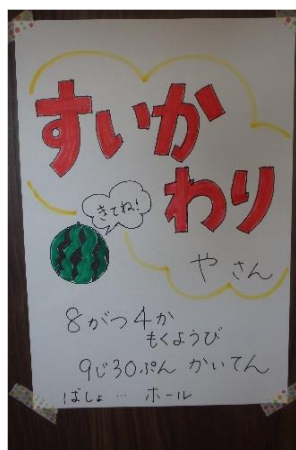 すいか
わり
きてね!
や さん
8がつ4か
もくようび
9じ30ぷん かいてん
ばしょ… ホール